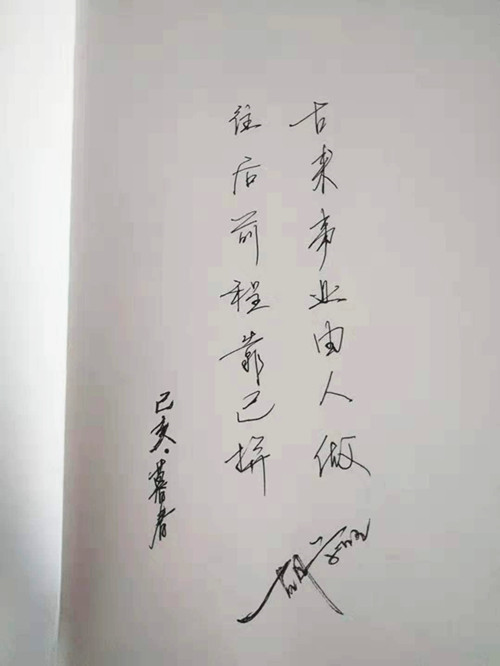 古来事业由人做
往后前程靠己拼
己亥·暮春